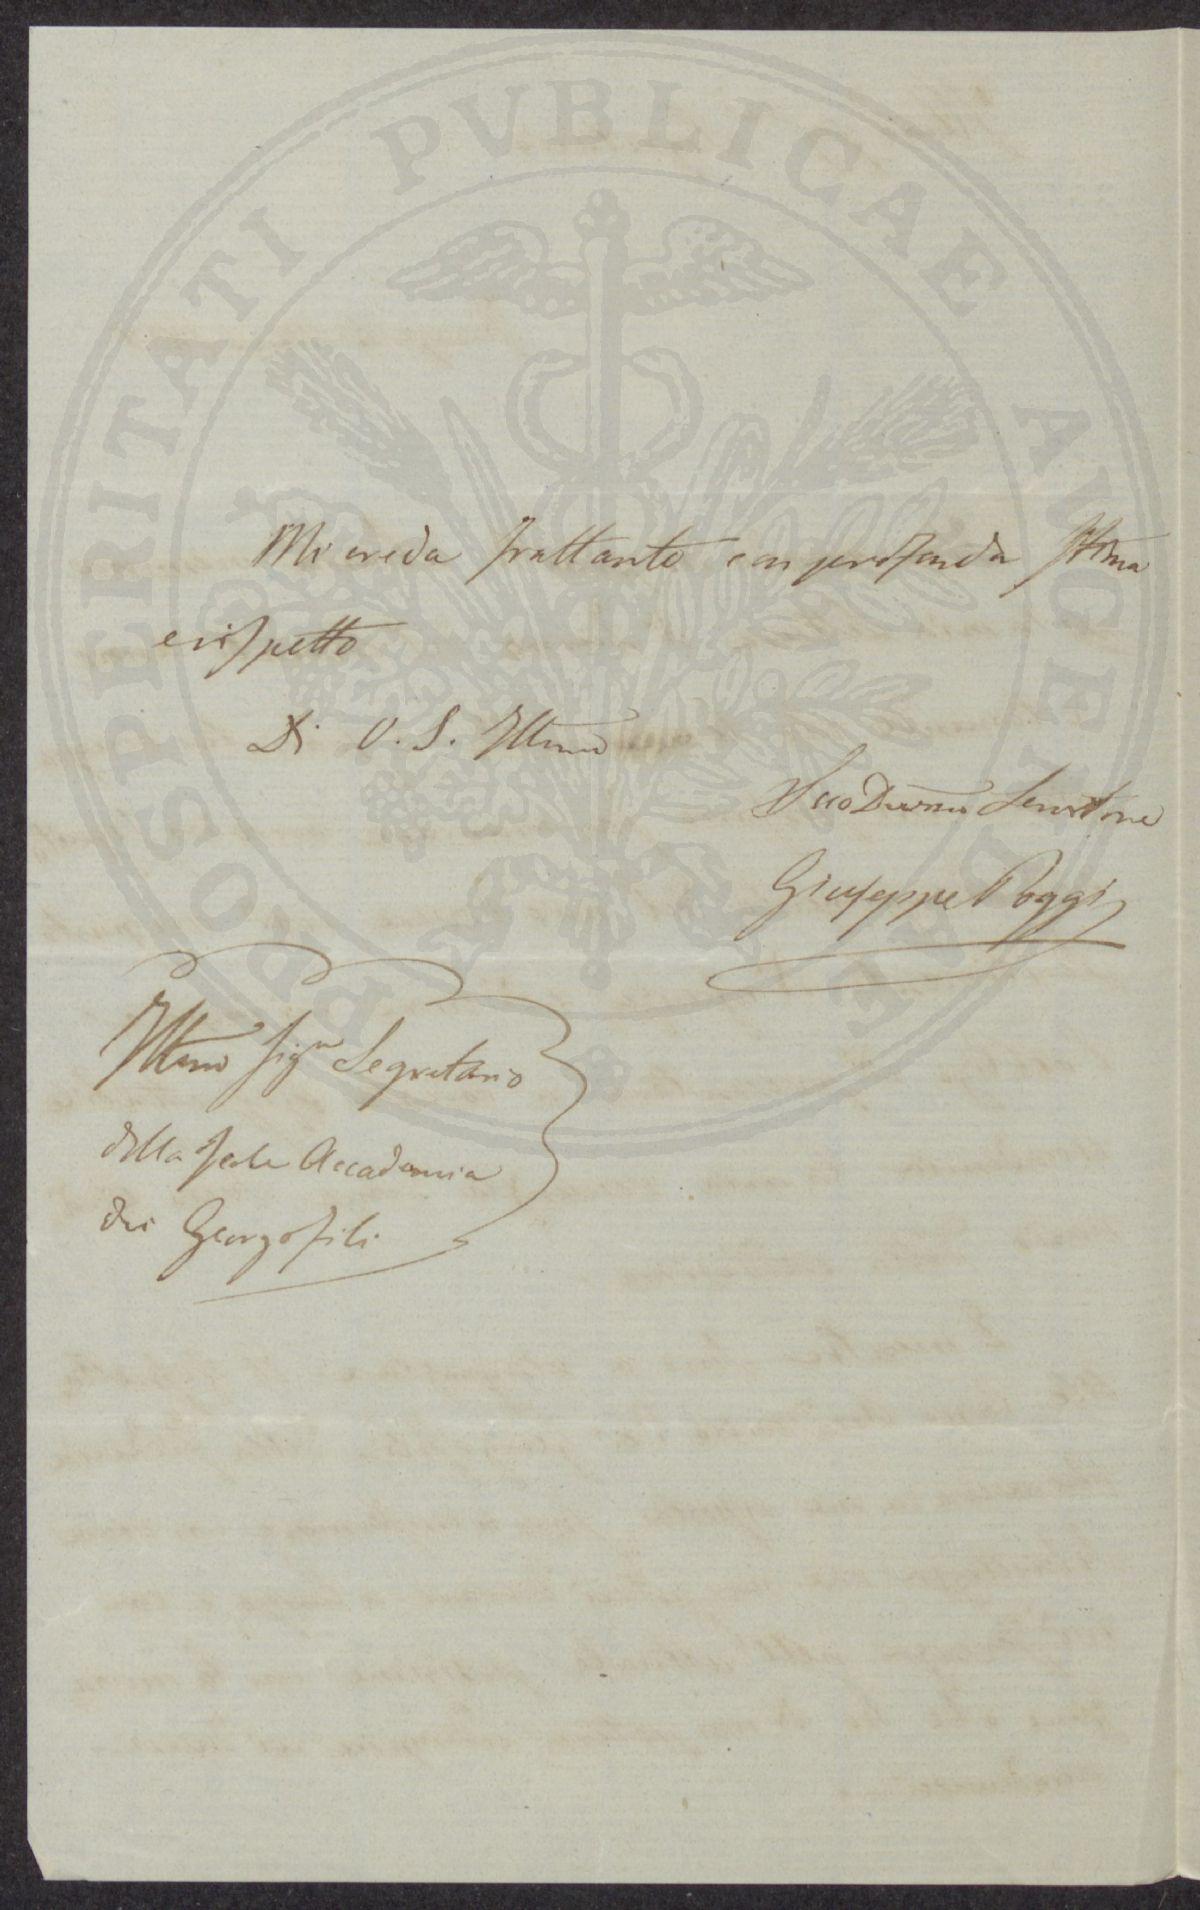 PROSPERITATI PVBLICAE AVGENDAE
Mi creda frattanto con profonda stima
e rispetto
Di V. S. Illma
Giuseppe Poggi
Illmo Sigr Segretario
della Accademia
dei Georgofili